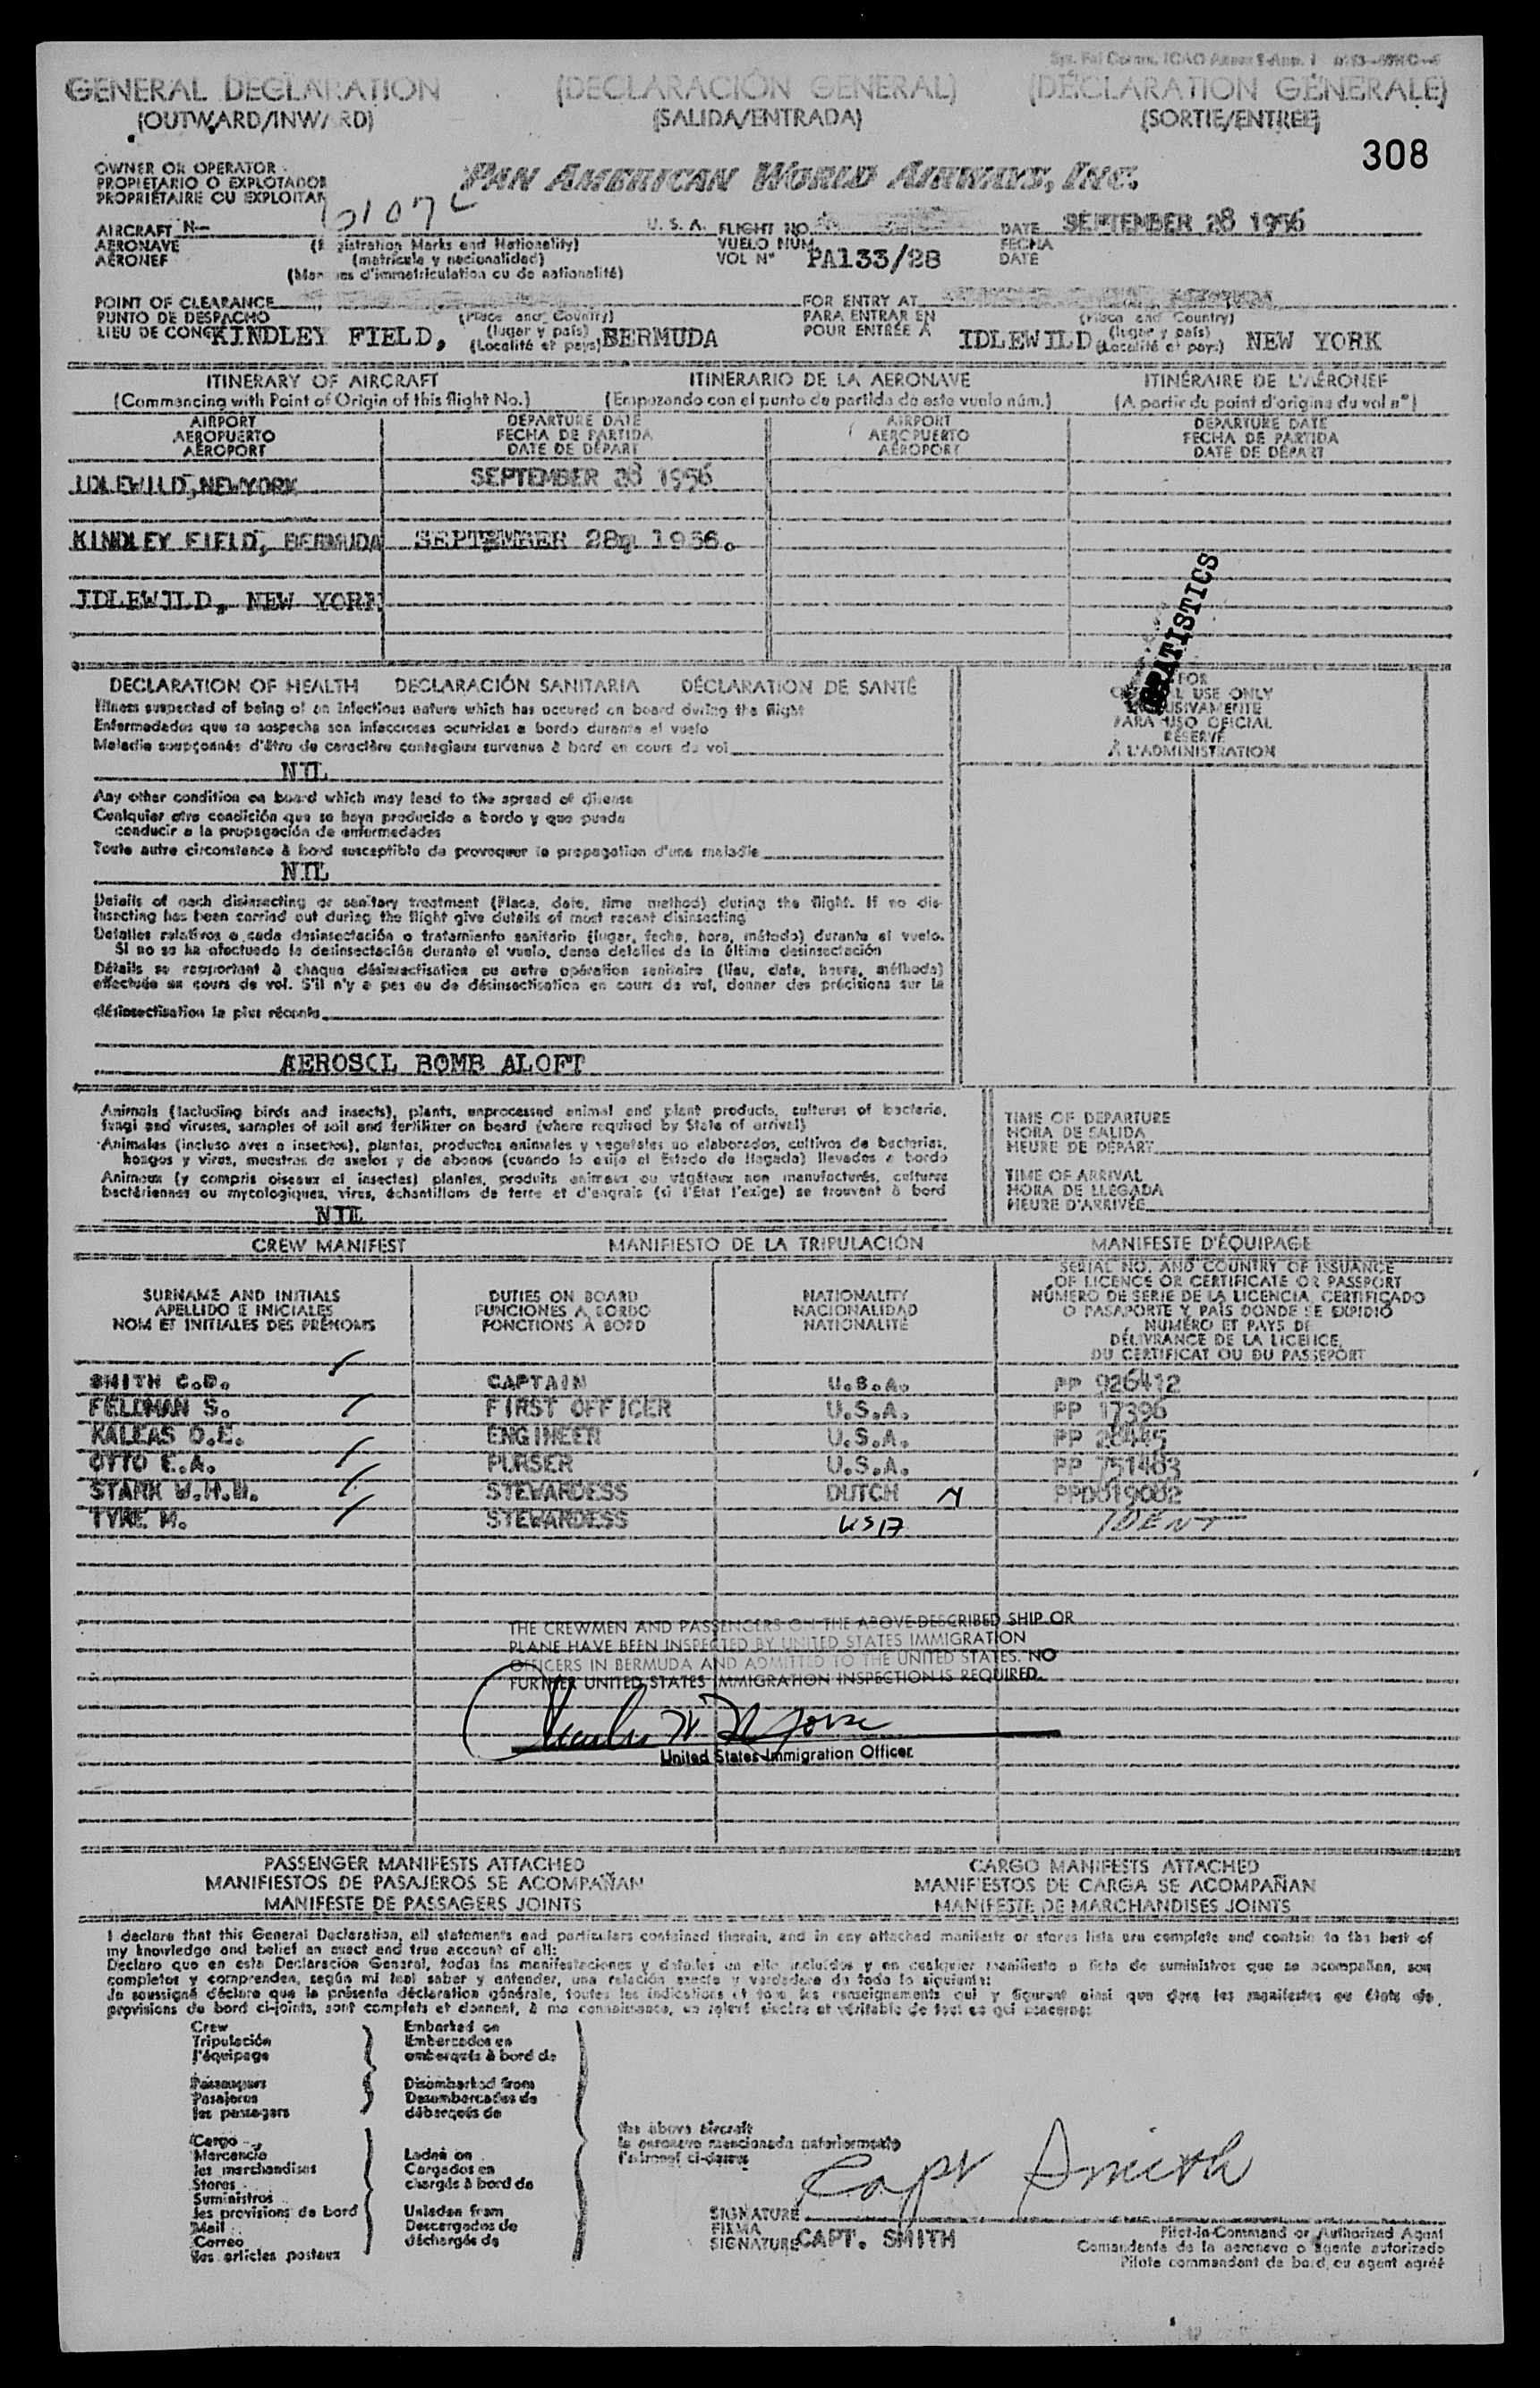 GENERAL DECLARATION (DECLARACIÓN GENERAL) (DÉCLARATION GÉNÉRALE)
(OUTWARD/INWARD) (SALIDA/ENTRADA) (SORTIE/ENTRÉE)
308
OWNER OR OPERATOR
PROPIETARIO O EXPLOTADOR
PROPRIÉTAIRE OU EXPLOITANT
PAN AMERICAN WORLD AIRWAYS, INC.
AIRCRAFT N- U. S. A. FLIGHT NO. DATE SEPTEMBER 28 1956
AERONAVE (Registration Marks and Nationality) VUELO NÚM. FECHA
AÉRONEF (matrícula y nacionalidad) VOL Nº PA133/28 DATE
(Marques d'immatriculation ou de nationalité)
POINT OF CLEARANCE FOR ENTRY AT
PUNTO DE DESPACHO (Place and Country) PARA ENTRAR EN (Place and Country)
LIEU DE CONGÉ KINDLEY FIELD, (lugar y país) BERMUDA POUR ENTRÉE À IDLEWILD (lugar y país) NEW YORK
(Localité et pays) (Localité et pays)
ITINERARY OF AIRCRAFT ITINERARIO DE LA AERONAVE ITINÉRAIRE DE L'AÉRONEF
(Commencing with Point of Origin of this flight No.) (Empezando con el punto de partida de este vuelo núm.) (A partir du point d'origine du vol nº)
AIRPORT DEPARTURE DATE AIRPORT DEPARTURE DATE
AEROPUERTO FECHA DE PARTIDA AEROPUERTO FECHA DE PARTIDA
AÉROPORT DATE DE DÉPART AÉROPORT DATE DE DÉPART
IDLEWILD, NEWYORK SEPTEMBER 28 1956
KINDLEY FIELD, BERMUDA SEPTEMBER 28, 1956.
IDLEWILD, NEW YORK
STATISTICS
DECLARATION OF HEALTH DECLARACIÓN SANITARIA DÉCLARATION DE SANTÉ
FOR
OFFICIAL USE ONLY
EXCLUSIVAMENTE
PARA USO OFICIAL
RÉSERVÉ
À L'ADMINISTRATION
Illness suspected of being of an infectious nature which has occured on board during the flight
Enfermedades que se sospecha son infecciosas ocurridas a bordo durante el vuelo
Maladie soupçonnés d'être de caractère contagieux survenue à bord en cours du vol
NIL
Any other condition on board which may lead to the spread of disease
Cualquier otra condición que se haya producido a bordo y que pueda
conducir a la propagación de enfermedades
Toute autre circonstance à bord susceptible de provoquer la propagation d'une maladie
NIL
Details of each disinsecting or sanitary treatment (Place, date, time method) during the flight. If no dis-
insecting has been carried out during the flight give details of most recent disinsecting
Detalles relativos a cada desinsectación o tratamiento sanitario (lugar, fecha, hora, método) durante el vuelo.
Si no se ha efectuado la desinsectación durante el vuelo, dense detalles de la última desinsectación
Détails se rapportant à chaque désinsectisation ou autre opération sanitaire (lieu, date, heure, méthode)
effectuée au cours de vol. S'il n'y a pas eu de désinsectisation en cours de vol, donner des précisions sur la
désinsectisation la plus récente
AEROSOL BOMB ALOFT
Animals (including birds and insects), plants, unprocessed animal and plant products, cultures of bacteria,
fungi and viruses, samples of soil and fertilizer on board (where required by State of arrival)
Animales (incluso aves e insectos), plantas, productos animales y vegetales no elaborados, cultivos de bacterias,
hongos y virus, muestras de suelos y de abonos (cuando lo exija el Estado de llegada) llevados a bordo
Animaux (y compris oiseaux et insectes) plantes, produits animaux ou végétaux non manufacturés, cultures
bactériennes ou mycologiques, virus, échantillons de terre et d'engrais (si l'État l'exige) se trouvent à bord
NIL
TIME OF DEPARTURE
HORA DE SALIDA
HEURE DE DÉPART
TIME OF ARRIVAL
HORA DE LLEGADA
HEURE D'ARRIVÉE
CREW MANIFEST MANIFIESTO DE LA TRIPULACIÓN MANIFESTE D'ÉQUIPAGE
SURNAME AND INITIALS DUTIES ON BOARD NATIONALITY
APELLIDO E INICIALES FUNCIONES A BORDO NACIONALIDAD
NOM ET INITIALES DES PRÉNOMS FONCTIONS À BORD NATIONALITÉ
SERIAL NO. AND COUNTRY OF ISSUANCE
OF LICENCE OR CERTIFICATE OR PASSPORT
NÚMERO DE SERIE DE LA LICENCIA, CERTIFICADO
O PASAPORTE Y PAÍS DONDE SE EXPIDIÓ
NUMÉRO ET PAYS DE
DÉLIVRANCE DE LA LICENCE,
DU CERTIFICAT OU DU PASSEPORT
SMITH C.D. CAPTAIN U.S.A. PP 926412
FELDMAN S. FIRST OFFICER U.S.A. PP 17396
KALEAS D.E. ENGINEER U.S.A. PP
OTTO E.A. PURSER U.S.A. PP 751403
STARK W.H.M. STEWARDESS DUTCH PPD019002
TYRE M. STEWARDESS USA IDENT
THE CREWMEN AND PASSENGERS ON THE ABOVE-DESCRIBED SHIP OR
PLANE HAVE BEEN INSPECTED BY UNITED STATES IMMIGRATION
OFFICERS IN BERMUDA AND ADMITTED TO THE UNITED STATES. NO
FURTHER UNITED STATES IMMIGRATION INSPECTION IS REQUIRED.
United States Immigration Officer.
PASSENGER MANIFESTS ATTACHED CARGO MANIFESTS ATTACHED
MANIFIESTOS DE PASAJEROS SE ACOMPAÑAN MANIFIESTOS DE CARGA SE ACOMPAÑAN
MANIFESTE DE PASSAGERS JOINTS MANIFESTE DE MARCHANDISES JOINTS
I declare that this General Declaration, all statements and particulars contained therein, and in any attached manifests or stores lists are complete and contain to the best of
my knowledge and belief an exact and true account of all:
Declaro que en esta Declaración General, todas las manifestaciones y detalles en ella incluídos y en cualquier manifiesto o lista de suministros que se acompañan, son
completos y comprenden, según mi leal saber y entender, una relación exacta y verdadera de todo lo siguiente:
Je soussigné déclare que la présente déclaration générale, toutes les indications et tous les renseignements qui y figurent ainsi que dans les manifestes ou états de
provisions de bord ci-joints, sont complets et donnent, à ma connaissance, un relevé sincère et véritable de tout ce qui concerne:
Crew Embarked on
Tripulación Embarcados en
l'équipage embarqués à bord de
Passengers Disembarked from
Pasajeros Desembarcados de
les passagers débarqués de
the above aircraft
la aeronave mencionada anteriormente
l'aéronef ci-dessus
Cargo
Mercancía Laden on
les marchandises Cargados en
Stores chargés à bord de
Suministros
les provisions de bord Unladen from
Mail Descargados de
Correo déchargés de
les articles postaux
Capt Smith
SIGNATURE
FIRMA
SIGNATURE CAPT. SMITH
Pilot-in-Command or Authorized Agent
Comandante de la aeronave o agente autorizado
Pilote commandant de bord, ou agent agréé